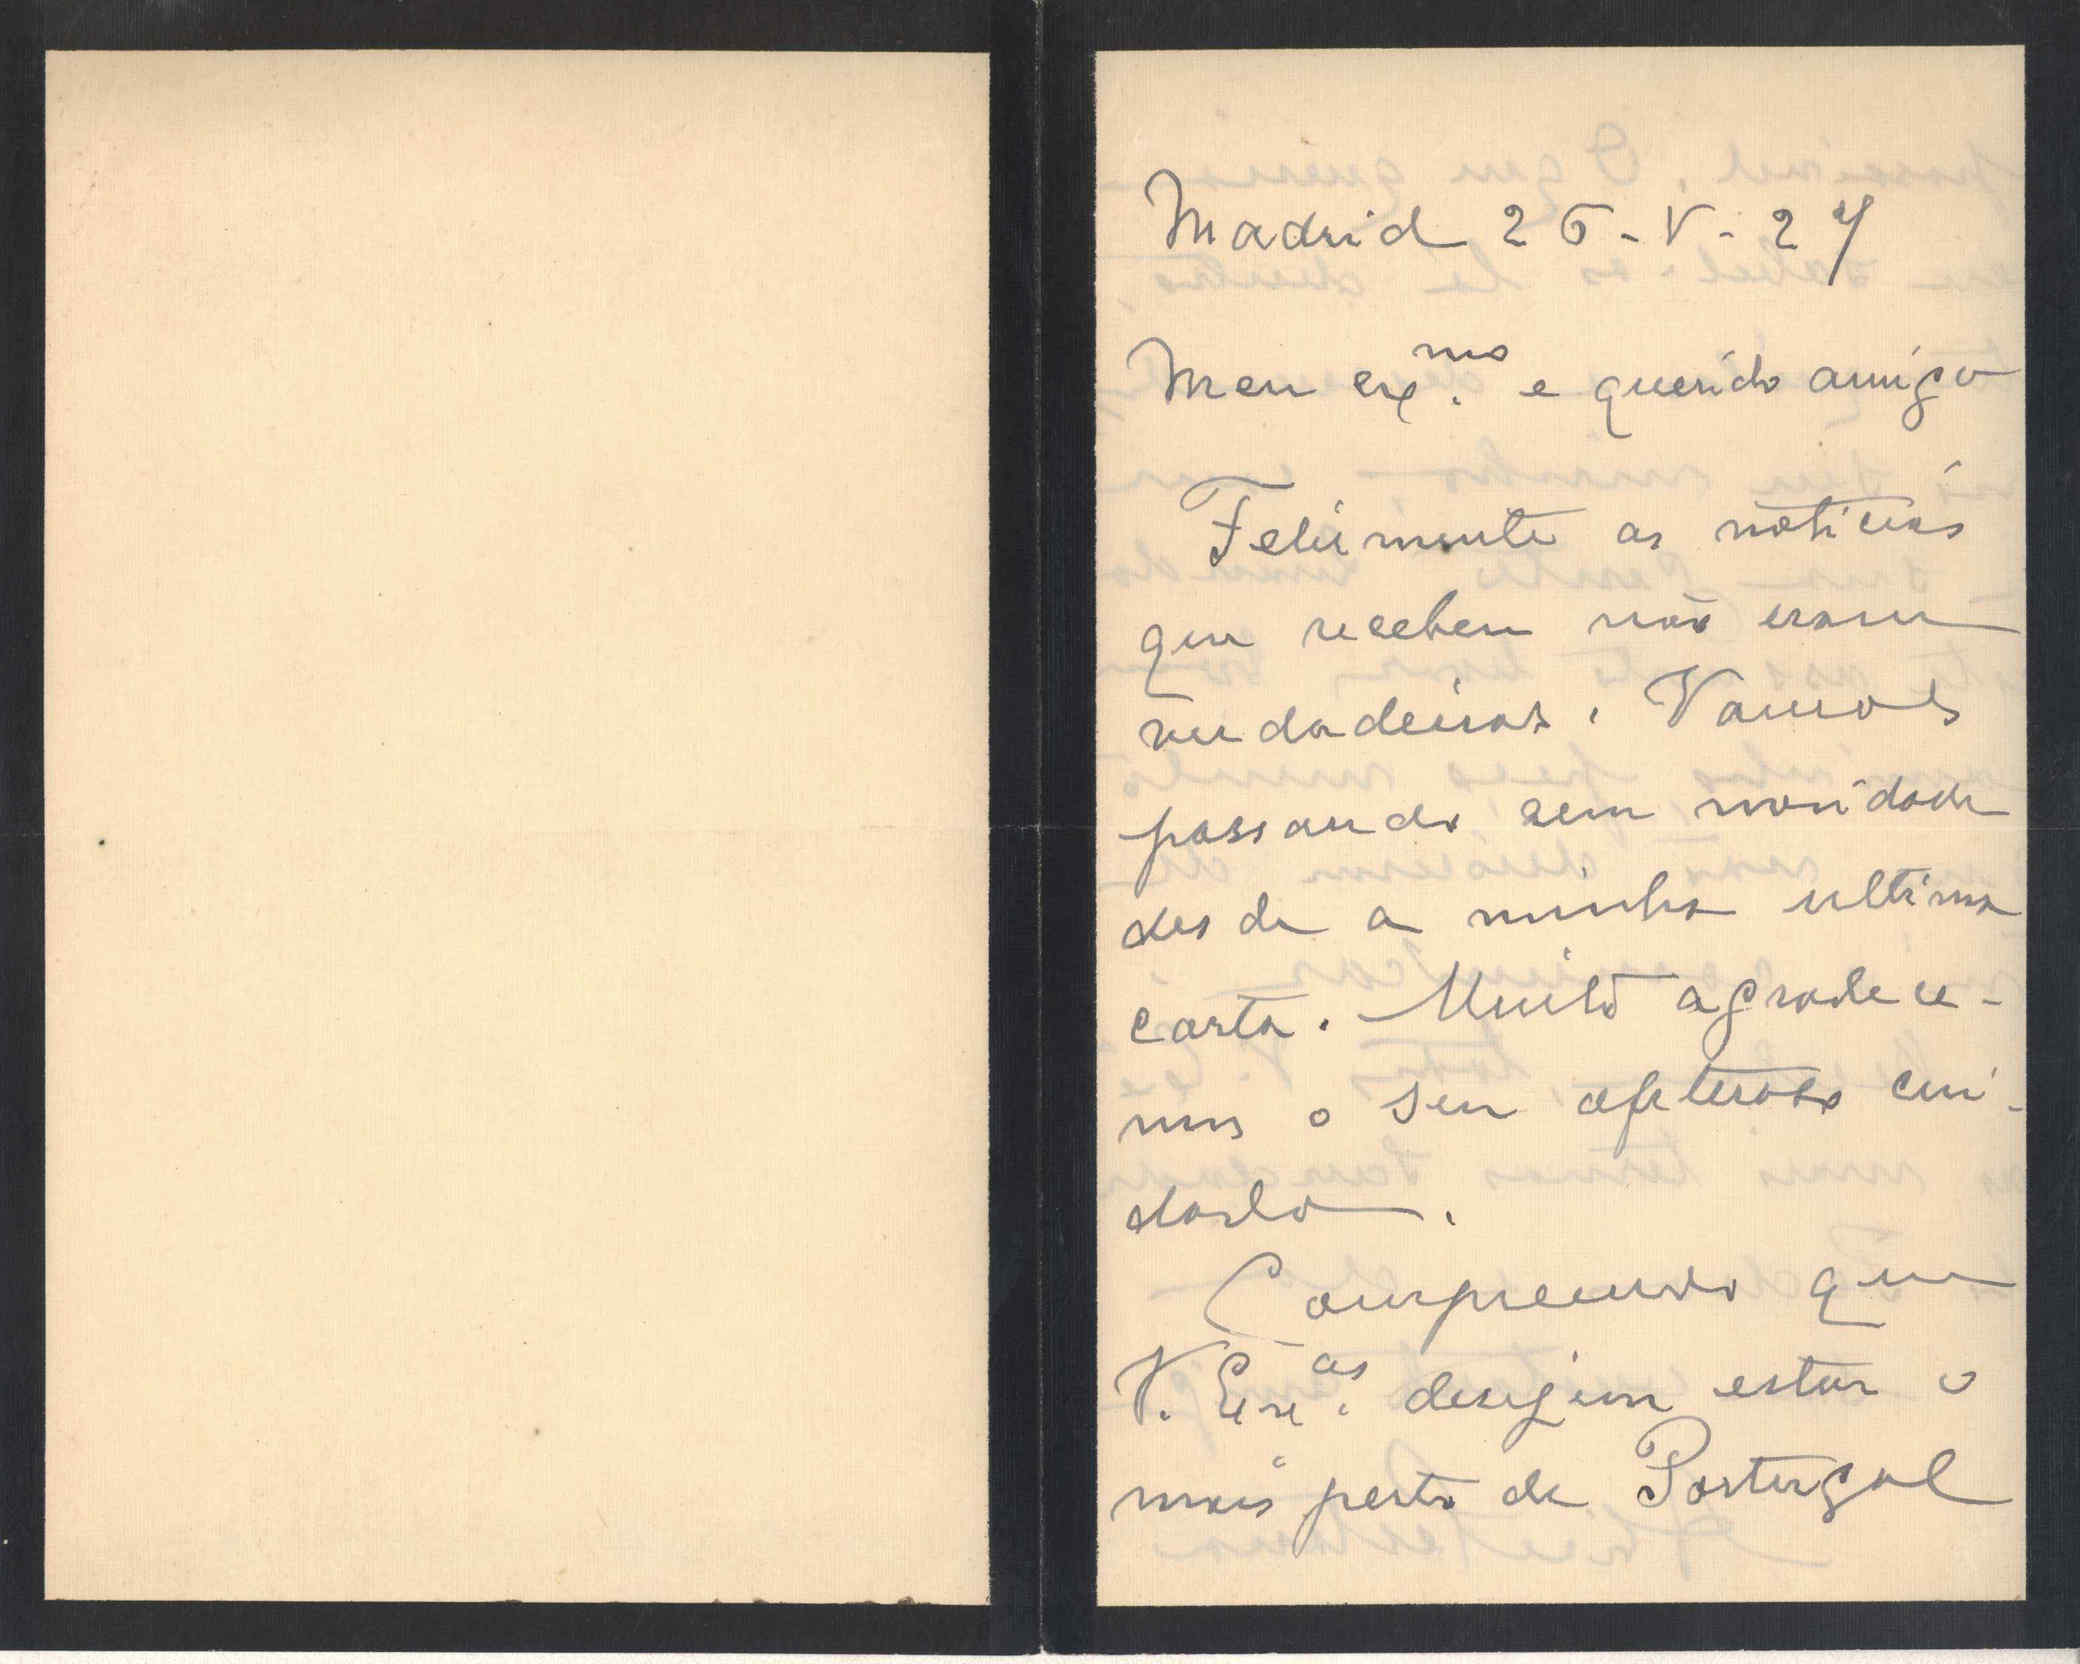 Madrid 26-V-27
Meu ex.mo e querido amigo
Felizmente as noticias
que recebeu não eram
verdadeiras. Vamos
passando sem novidade
desde a minha ultima
carta. Muito agradece-
mos o seu afetuoso cui-
dado.
Compreendo que
V. Ex.as desejem estar o
mais perto de Portugal